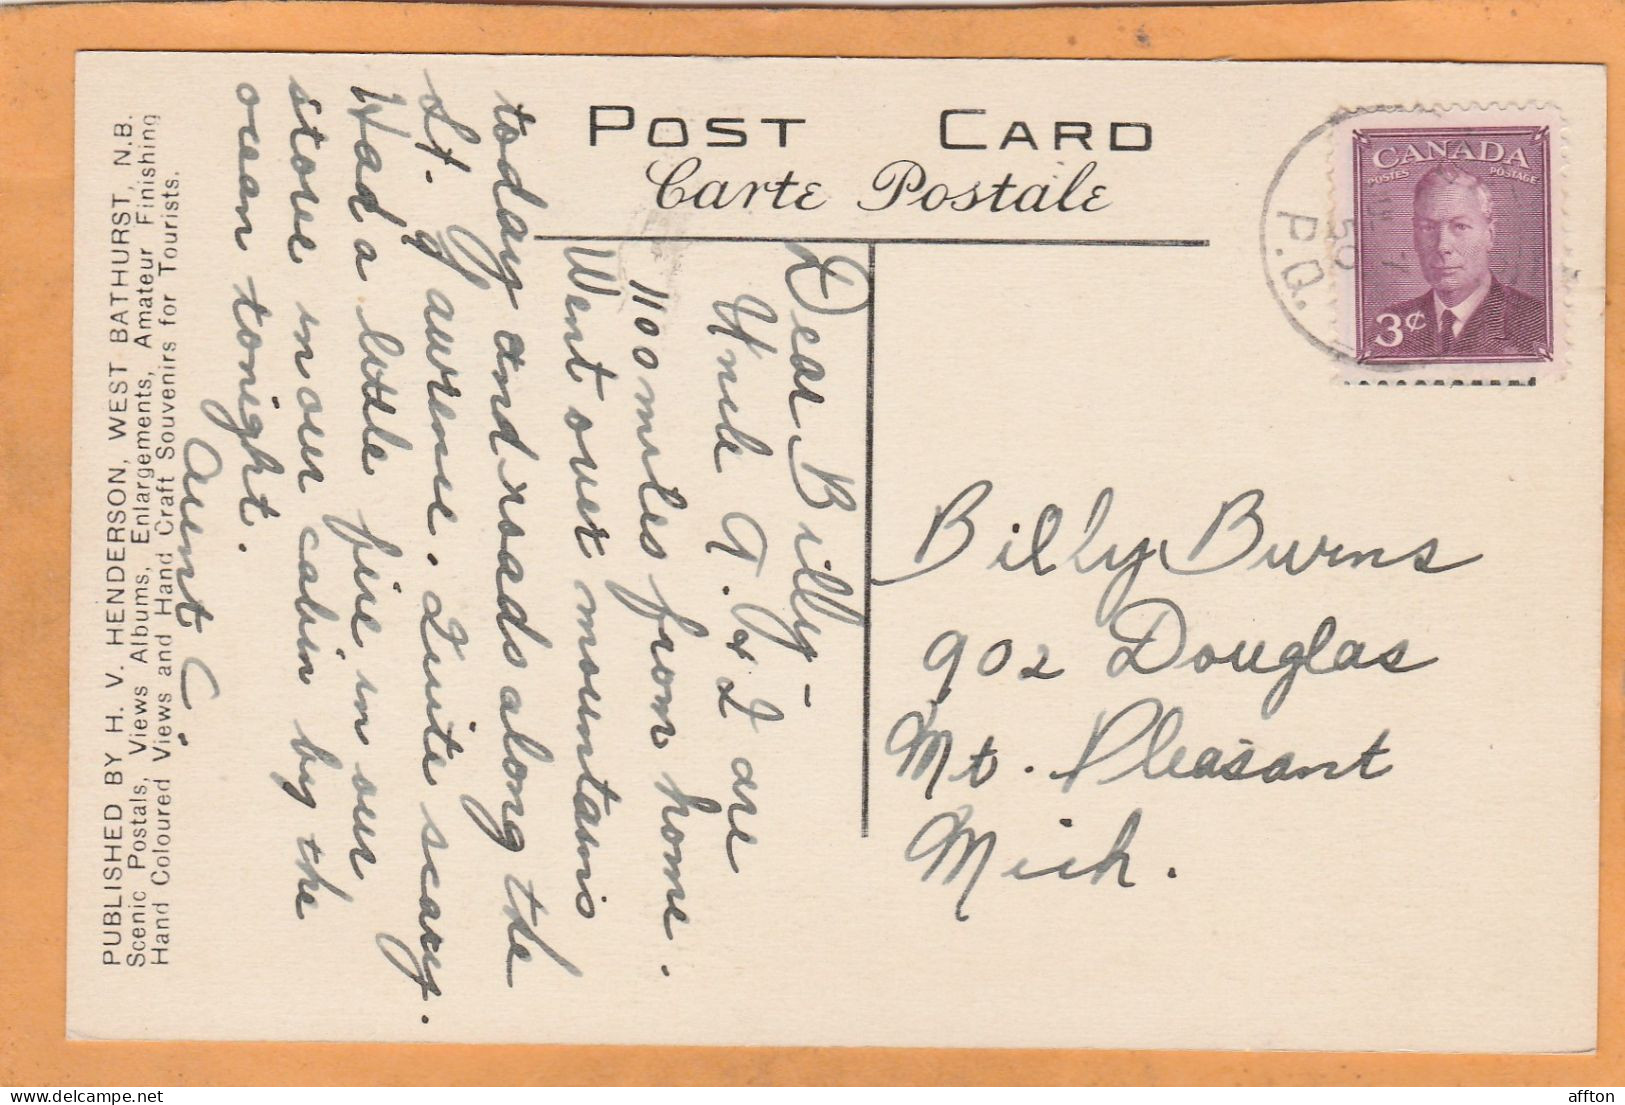 POST CARD
Carte Postale
CANADA
POSTES POSTAGE
3¢
50
P.Q.
Dear Billy -
Uncle T. & I are
1100 miles from home.
Went over mountains
today and roads along the
St. Lawrence. Quite scary.
Had a little fire in our
stove in our cabin by the
ocean tonight.
Aunt C.
Billy Burns
902 Douglas
Mt. Pleasant
Mich.
PUBLISHED BY H. V. HENDERSON, WEST BATHURST, N.B.
Scenic Postals, Views Albums, Enlargements, Amateur Finishing
Hand Coloured Views and Hand Craft Souvenirs for Tourists.
affton